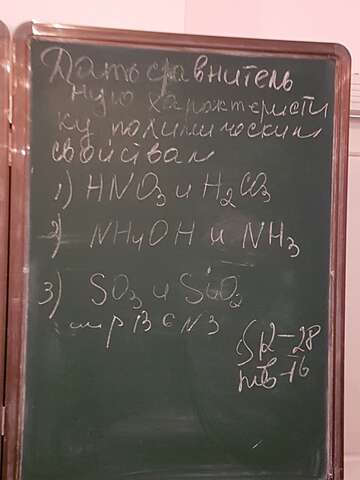 Дать сравнитель
ную характеристи
ку по химическим
свойствам
1) HNO3 и H2CO3
2) NH4OH и NH3
3) SO3 и SiO2
стр 13 6 N3